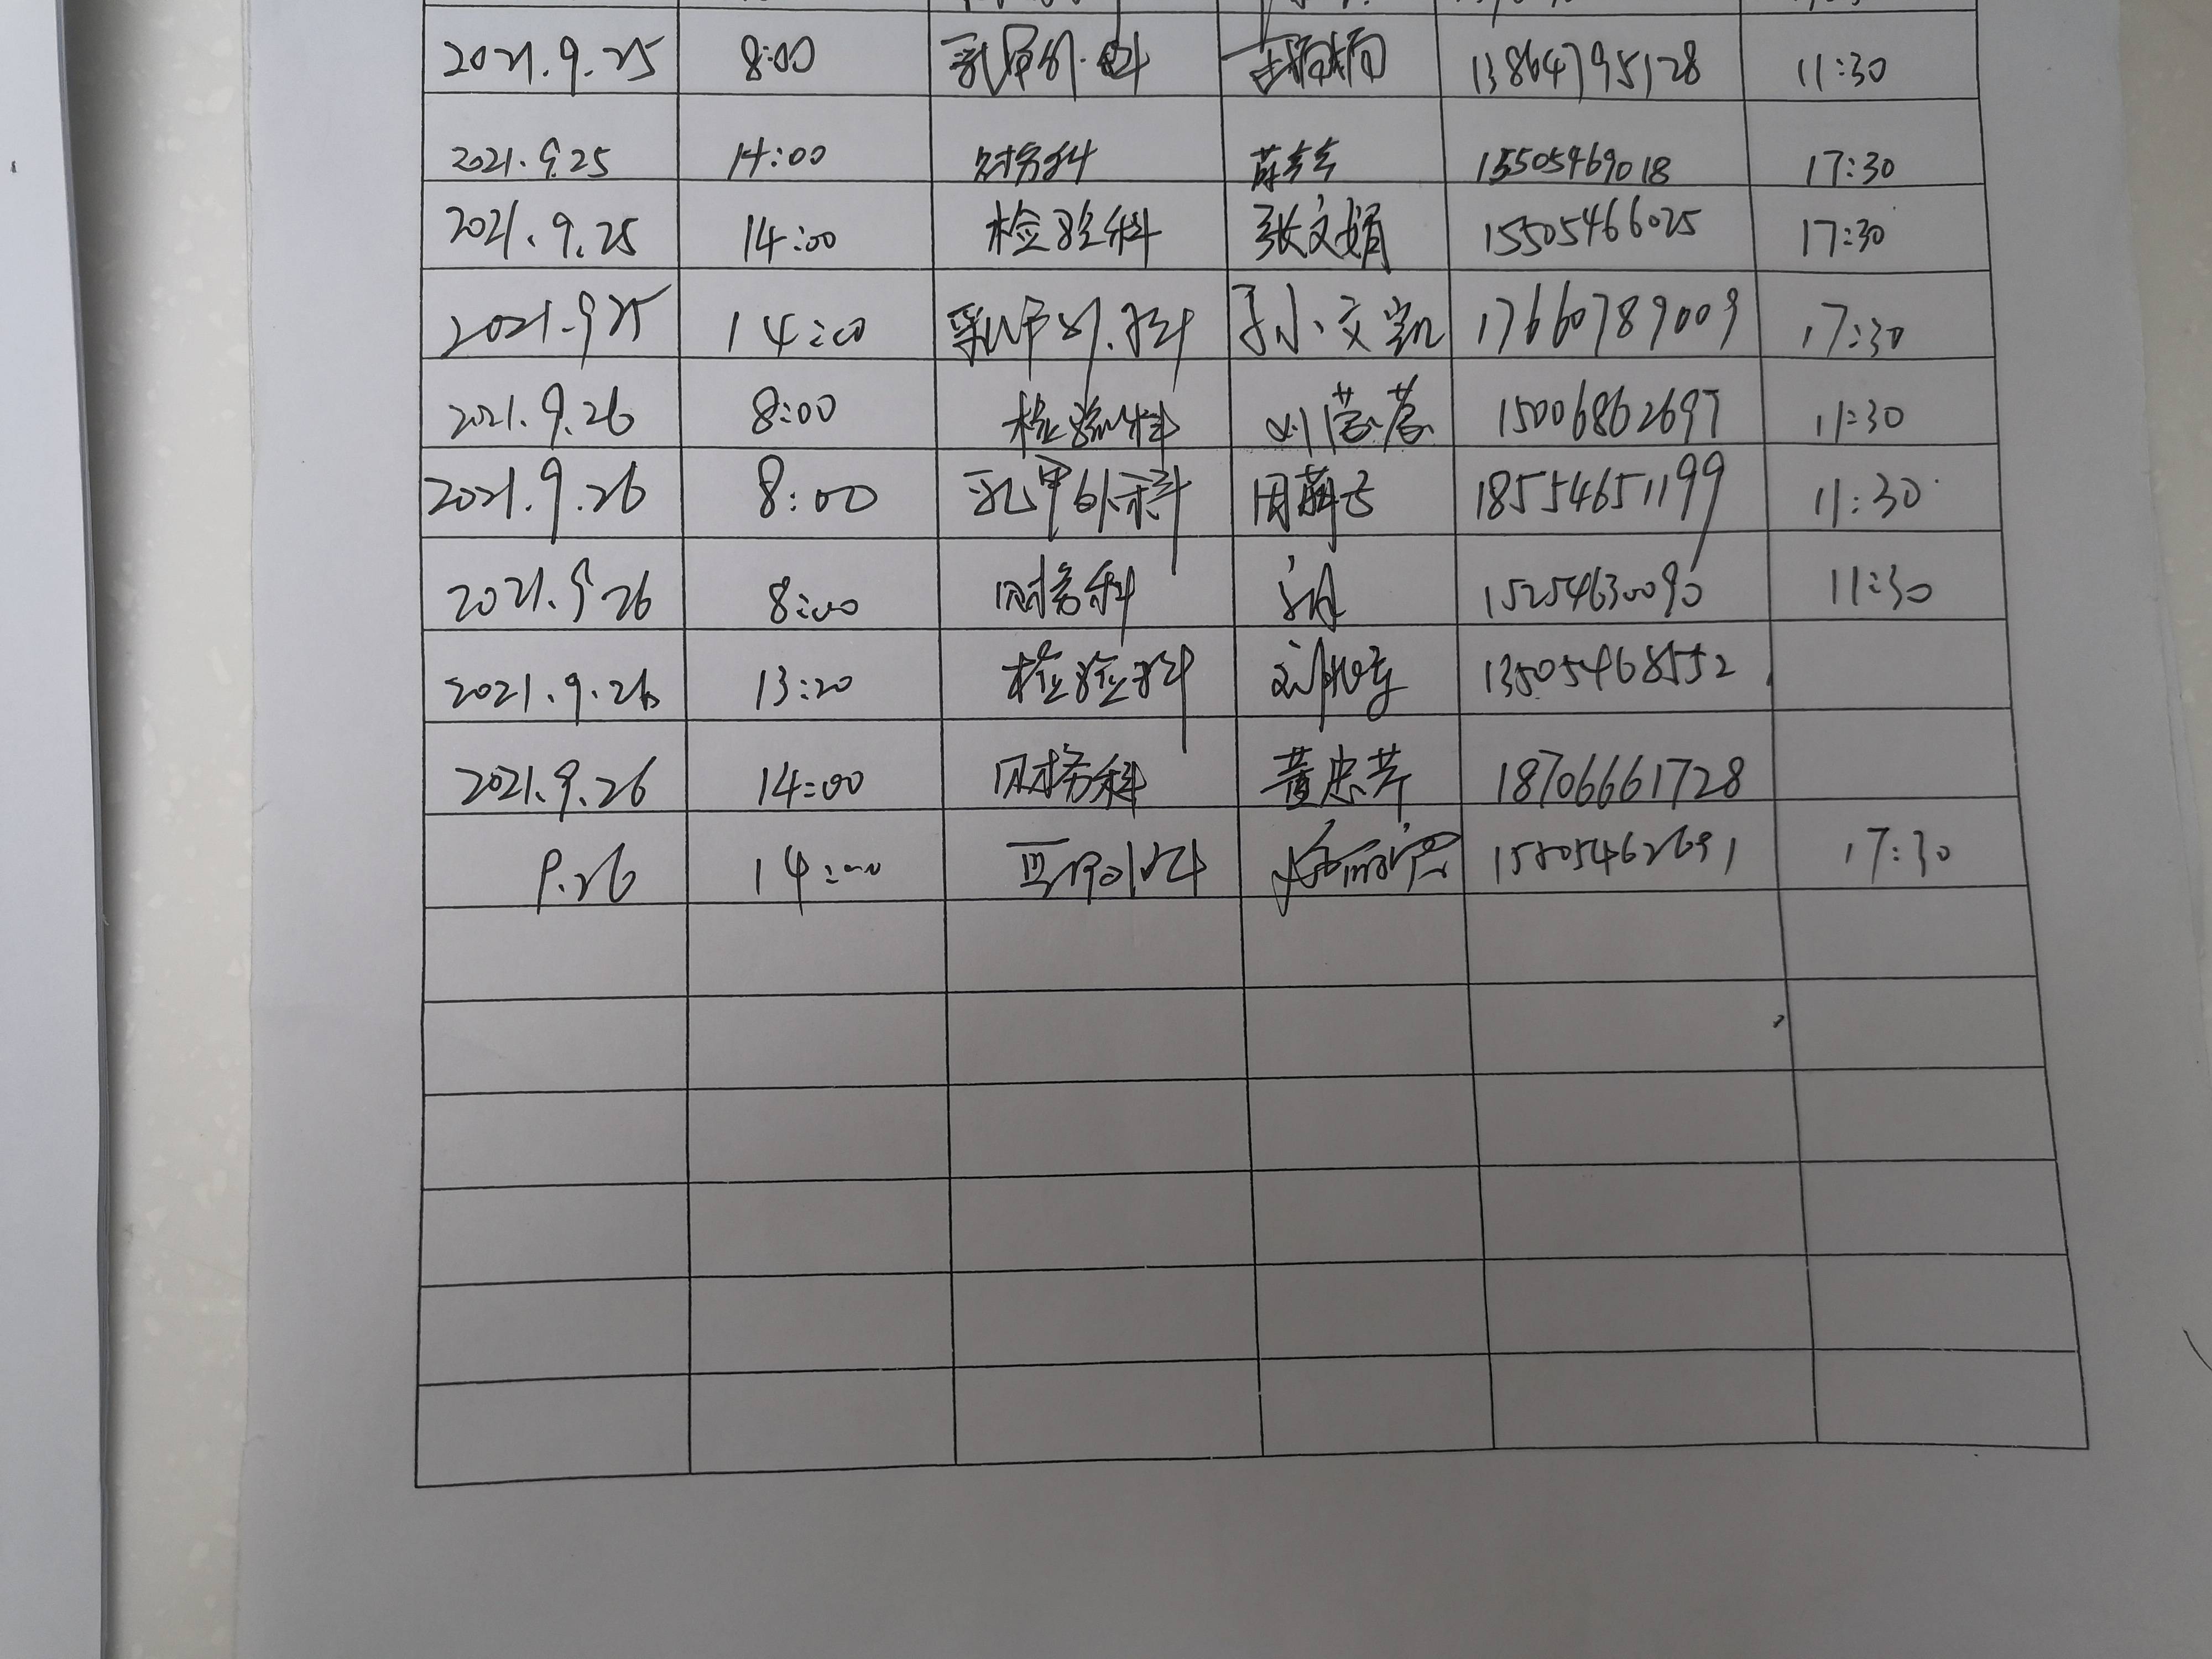 2021.9.25 8:00 乳甲外科 13864795128 11:30
2021.9.25 14:00 财务科 薛 15505469018 17:30
2021.9.25 14:00 检验科 张文娟 15505466025 17:30
2021.9.25 14:00 乳甲外科 孙文凯 17660789009 17:30
2021.9.26 8:00 检验科 刘 15006862697 11:30
2021.9.26 8:00 乳甲外科 周 18554651199 11:30
2021.9.26 8:00 财务科 15254630090 11:30
2021.9.26 13:20 检验科 刘 13505468552
2021.9.26 14:00 财务科 董忠芹 18706661728
9.26 14:00 15805462691 17:30